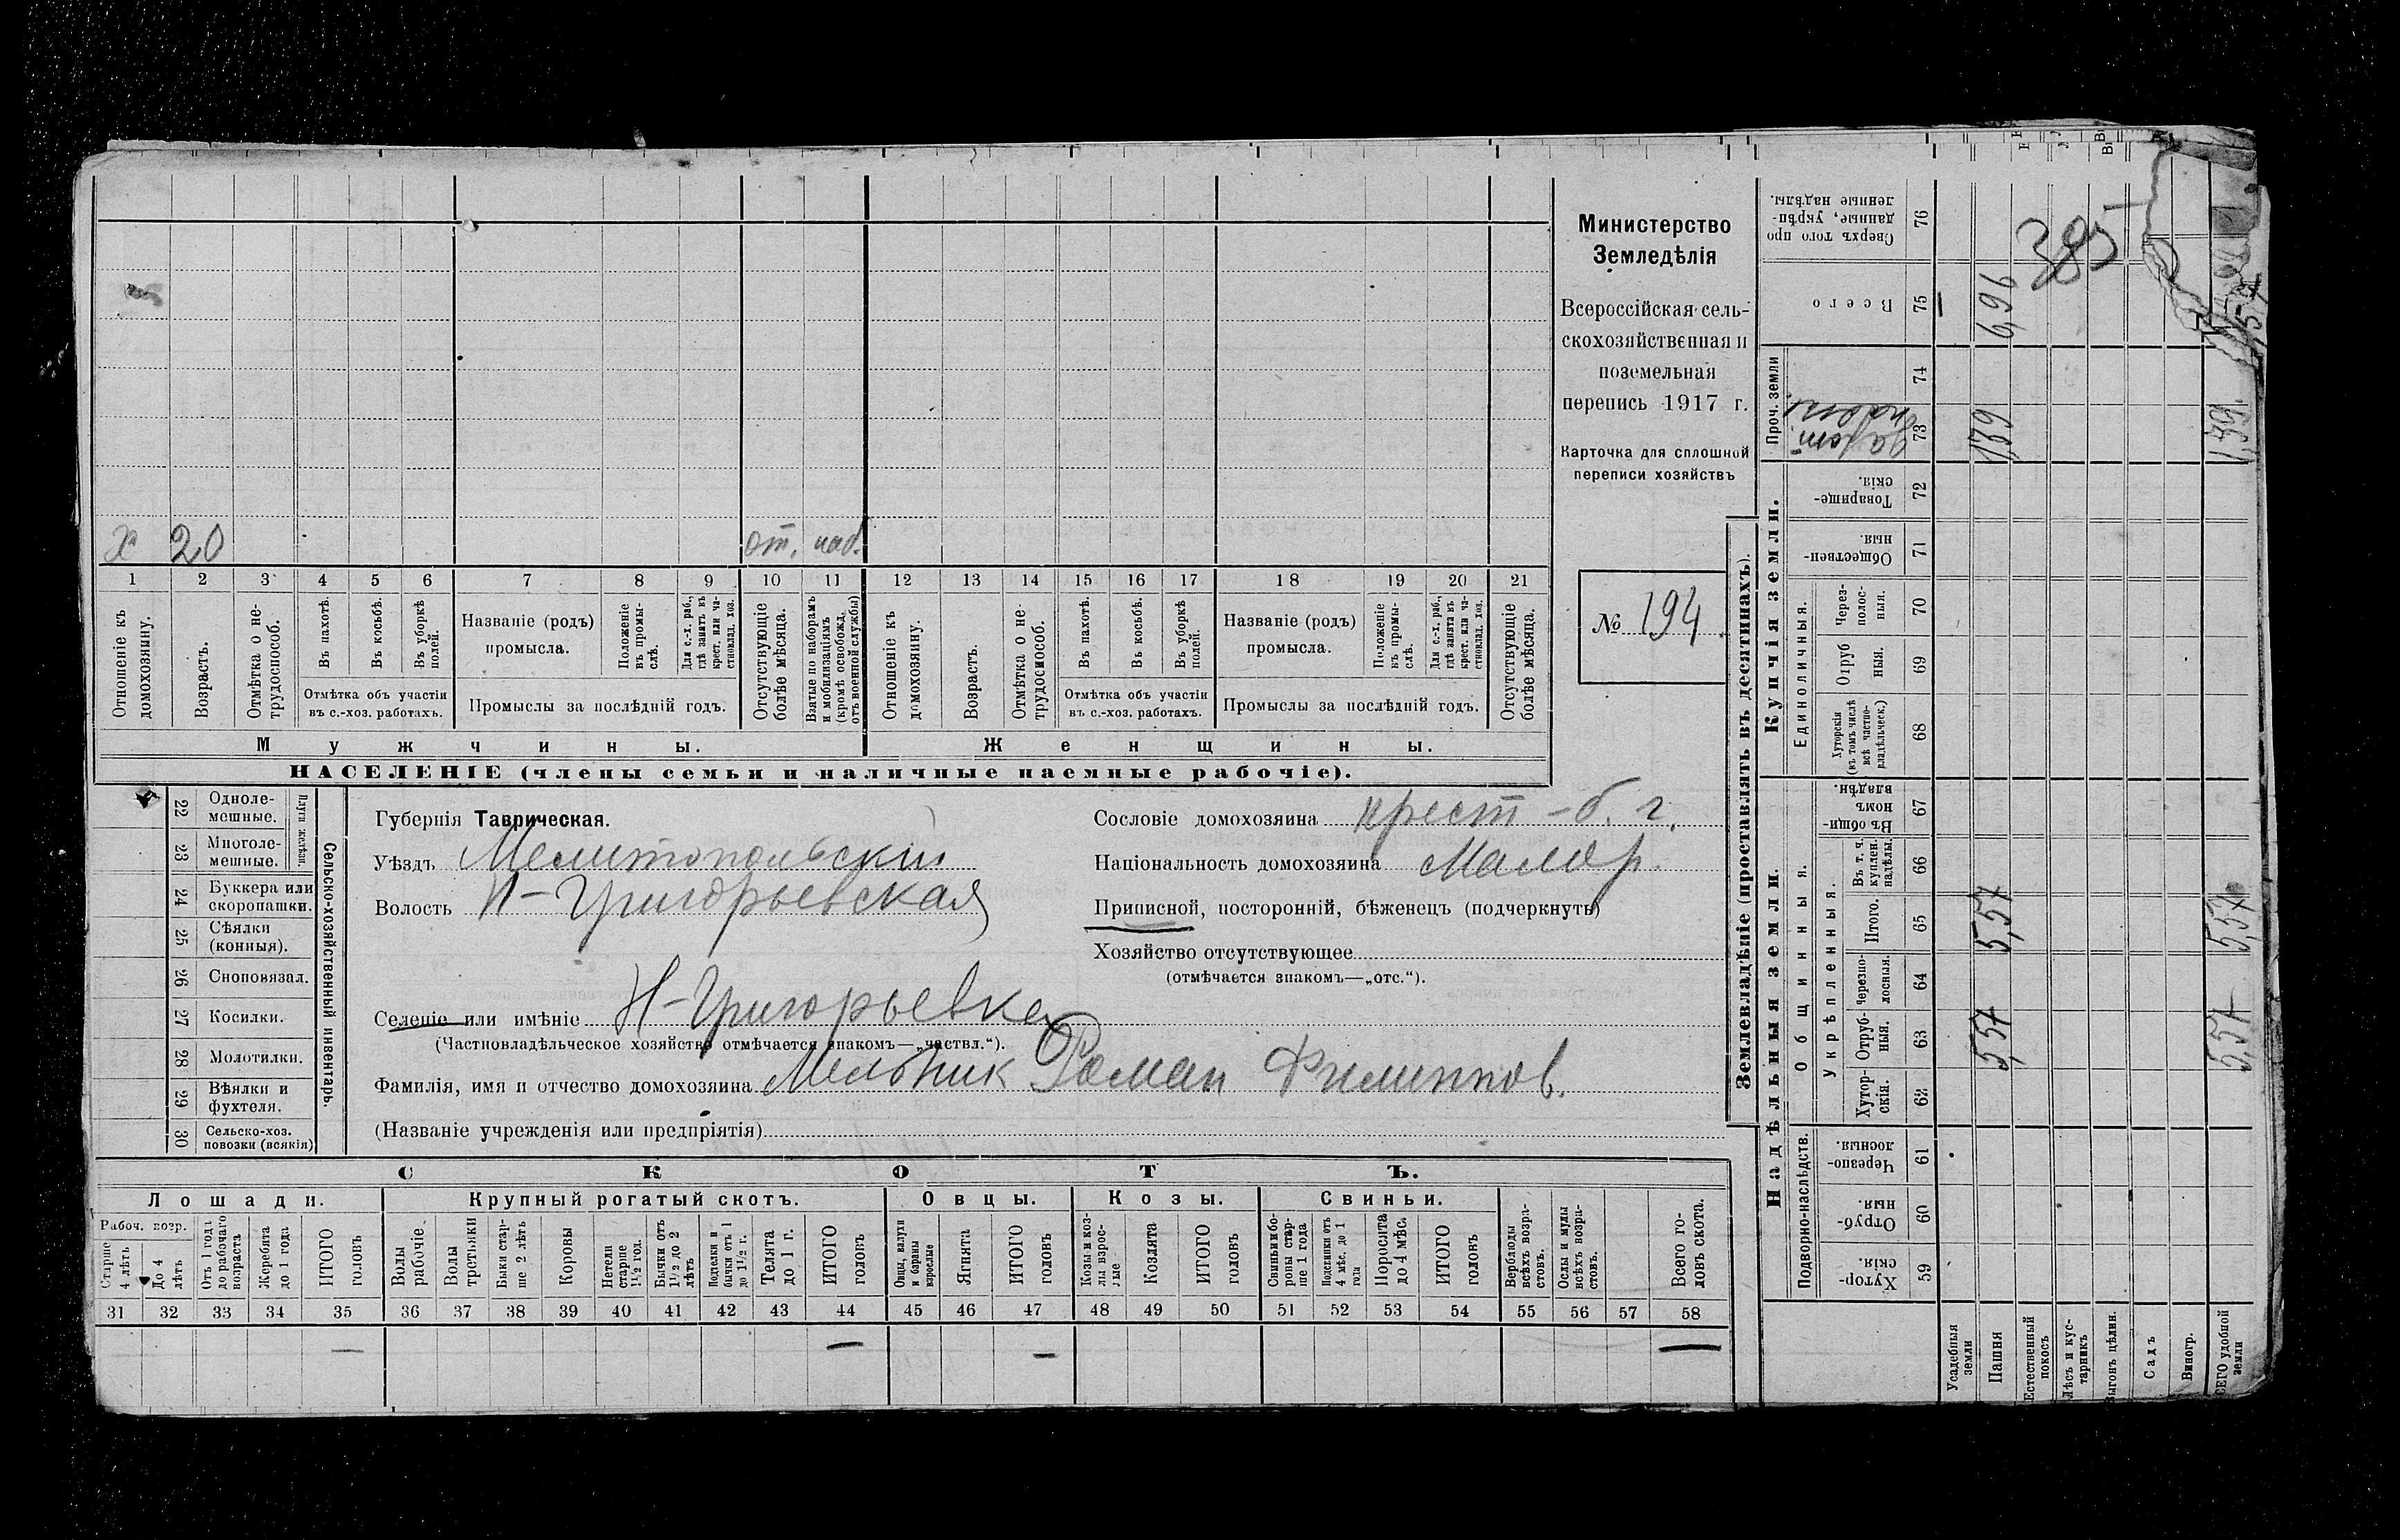 Министерство
Земледѣлія
Всероссійская сель-
скохозяйственная и
поземельная
перепись 1917 г.
Карточка для сплошной
переписи хозяйствъ
№ 194
х 20 от. наб.
1 2 3 4 5 6 7 8 9 10 11 12 13 14 15 16 17 18 19 20 21
Отношеніе къ домохозяину.
Возрастъ.
Отмѣтка о не-трудоспособ.
Въ пахотѣ.
Въ косьбѣ.
Въ уборкѣ полей.
Отмѣтка объ участіи
въ с.-хоз. работахъ.
Названіе (родъ)
промысла.
Положеніе въ промы-слѣ.
Для с.-х. раб., гдѣ занятъ въ крест. или ча-стновлад. хоз.
Промыслы за послѣдній годъ.
Отсутствующіе болѣе мѣсяца.
Взятые по наборамъ и мобилизаціямъ (кромѣ освобожд. отъ военной службы)
Отношеніе къ домохозяину.
Возрастъ.
Отмѣтка о не-трудоспособ.
Въ пахотѣ.
Въ косьбѣ.
Въ уборкѣ полей.
Отмѣтка объ участіи
въ с.-хоз. работахъ.
Названіе (родъ)
промысла.
Положеніе въ промы-слѣ.
Для с.-х. раб., гдѣ занята въ крест. или ча-стновлад. хоз.
Промыслы за послѣдній годъ.
Отсутствующіе болѣе мѣсяца.
Мужчины.
Женщины.
НАСЕЛЕНІЕ (члены семьи и наличные наемные рабочіе).
22 Одноле-мешные.
23 Многоле-мешные.
Плуги желѣзн.
24 Буккера или скоропашки.
25 Сѣялки (конныя).
26 Сноповязал.
27 Косилки.
28 Молотилки.
29 Вѣялки и фухтеля.
30 Сельско-хоз. повозки (всякія)
Сельско-хозяйственный инвентарь.
Губернія Таврическая.
Уѣздъ Мелитопольскій
Волость Н-Григорьевская
Селеніе или имѣніе Н-Григорьевка
(Частновладѣльческое хозяйство отмѣчается знакомъ—„частвл.“).
Фамилія, имя и отчество домохозяина Мельник Роман Филиппов.
(Названіе учрежденія или предпріятія)
Сословіе домохозяина крест - б. г.
Національность домохозяина Малор.
Приписной, посторонній, бѣженецъ (подчеркнуть)
Хозяйство отсутствующее
(отмѣчается знакомъ—„отс.“).
СКОТЪ.
Лошади.
Крупный рогатый скотъ.
Овцы.
Козы.
Свиньи.
Рабоч. возр.
Старше 4 лѣтъ
До 4 лѣтъ
Отъ 1 года до рабочаго возраста
Жеребята до 1 года
ИТОГО головъ
Волы рабочіе
Волы третьяки
Быки стар-ше 2 лѣтъ
Коровы
Нетели старше 1½ год.
Бычки отъ 1½ до 2 лѣтъ
Подтелки и бычки отъ 1 до 1½ г.
Телята до 1 г.
ИТОГО головъ
Овцы, валухи и бараны взрослые
Ягнята
ИТОГО головъ
Козы и коз-лы взрос-лые
Козлята
ИТОГО головъ
Свиньи и бо-ровы стар-ше 1 года
Подсвинки отъ 4 мѣс. до 1 года
Поросята до 4 мѣс.
ИТОГО головъ
Верблюды всѣхъ возра-стовъ.
Ослы и мулы всѣхъ возра-стовъ.
Всего го-ловъ скота.
31 32 33 34 35 36 37 38 39 40 41 42 43 44 45 46 47 48 49 50 51 52 53 54 55 56 57 58
— — — —
Землевладѣніе (проставлять въ десятинахъ).
Надѣльныя земли.
Купчія земли.
Проч. земли
Подворно-наслѣдств.
Общинныя.
Укрѣпленныя.
Единоличныя.
Хутор-скія. 59
Отруб-ныя. 60
Черезпо-лосныя. 61
Хутор-скія. 62
Отруб-ныя. 63
Черезпо-лосныя. 64
Итого. 65
Въ т. ч. куплен. надѣлы. 66
Въ общи-номъ владѣн. 67
Хуторскія (въ томъ числѣ всѣ частно-владѣльческ.) 68
Отруб ныя. 69
Через-полос-ныя. 70
Обществен-ныя. 71
Товарище-скія. 72
73
74
Всего 75
Сверхъ того про данные, укрѣп-ленные надѣлы. 76
Усадебныя земли
Пашня 5,57 5,57 1,39 6,96
Естественный покосъ
Лѣсъ и кус-тарникъ
Выгонъ цѣлин.
Садъ
Виногр.
ВСЕГО удобной земли 5,57 5,57 1,39
385